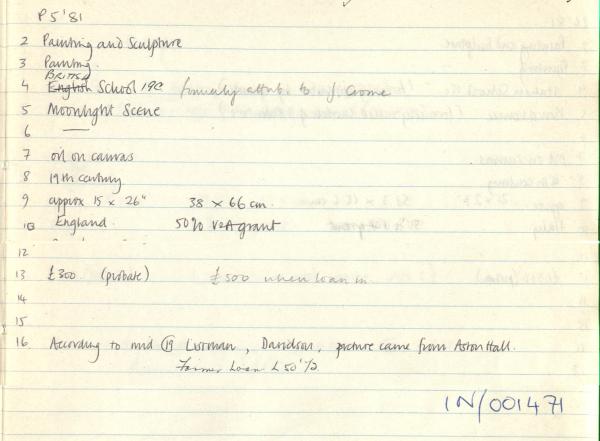 P 5'81
2 Painting and Sculpture
3 Painting.
British
4 English School 19C formerly attrib. to J Crome
5 Moonlight Scene
6 —
7 oil on canvas
8 19th century
9 approx 15 x 26" 38 x 66 cm.
10 England. 50% V&A grant
12
13 £300 (probate) £500 when loan in
14
15
16 According to mid 19 , Davidson, picture came from Aston Hall.
Former Loan L50'72
IN/001471